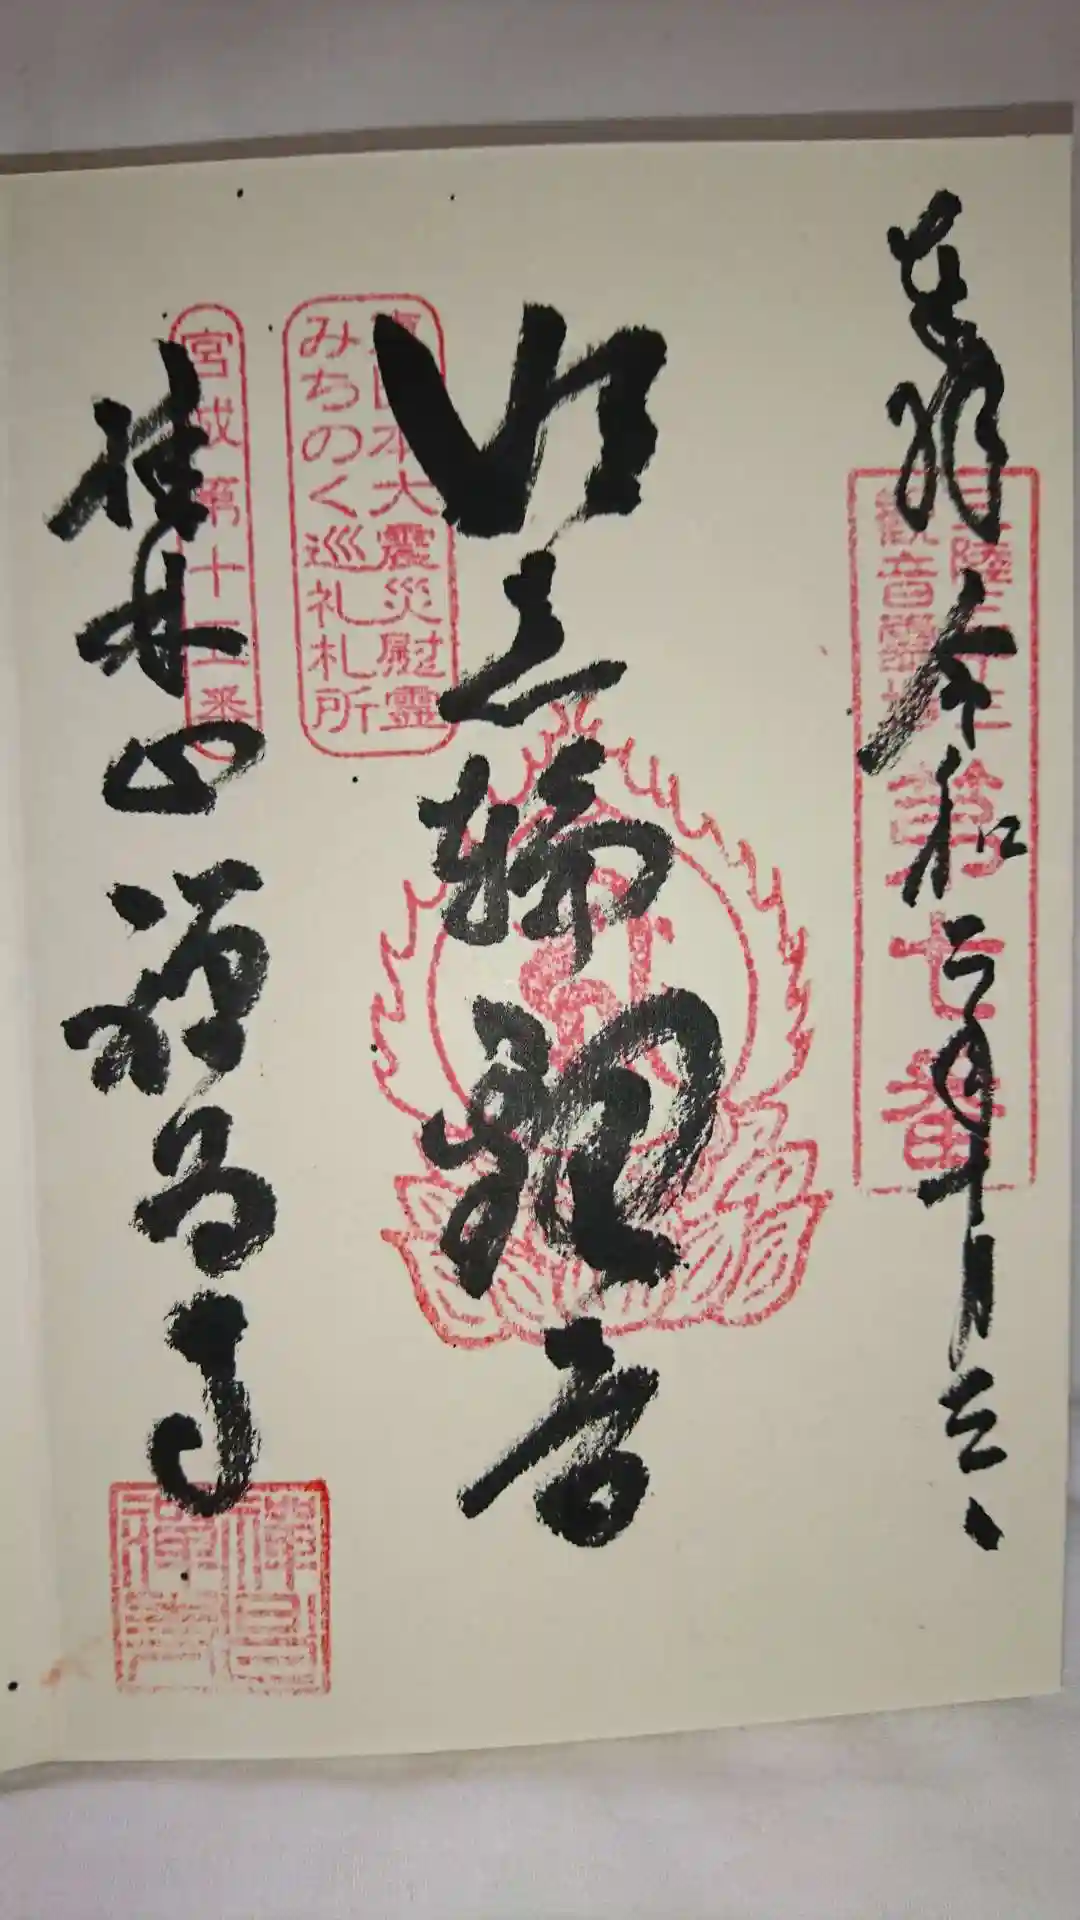 奉拝 令和二年十月三日
三陸三十三
観音霊場
第七番
如意輪観音
東日本大震災慰霊
みちのく巡礼札所
宮城第十五番
桂林山 禅昌寺